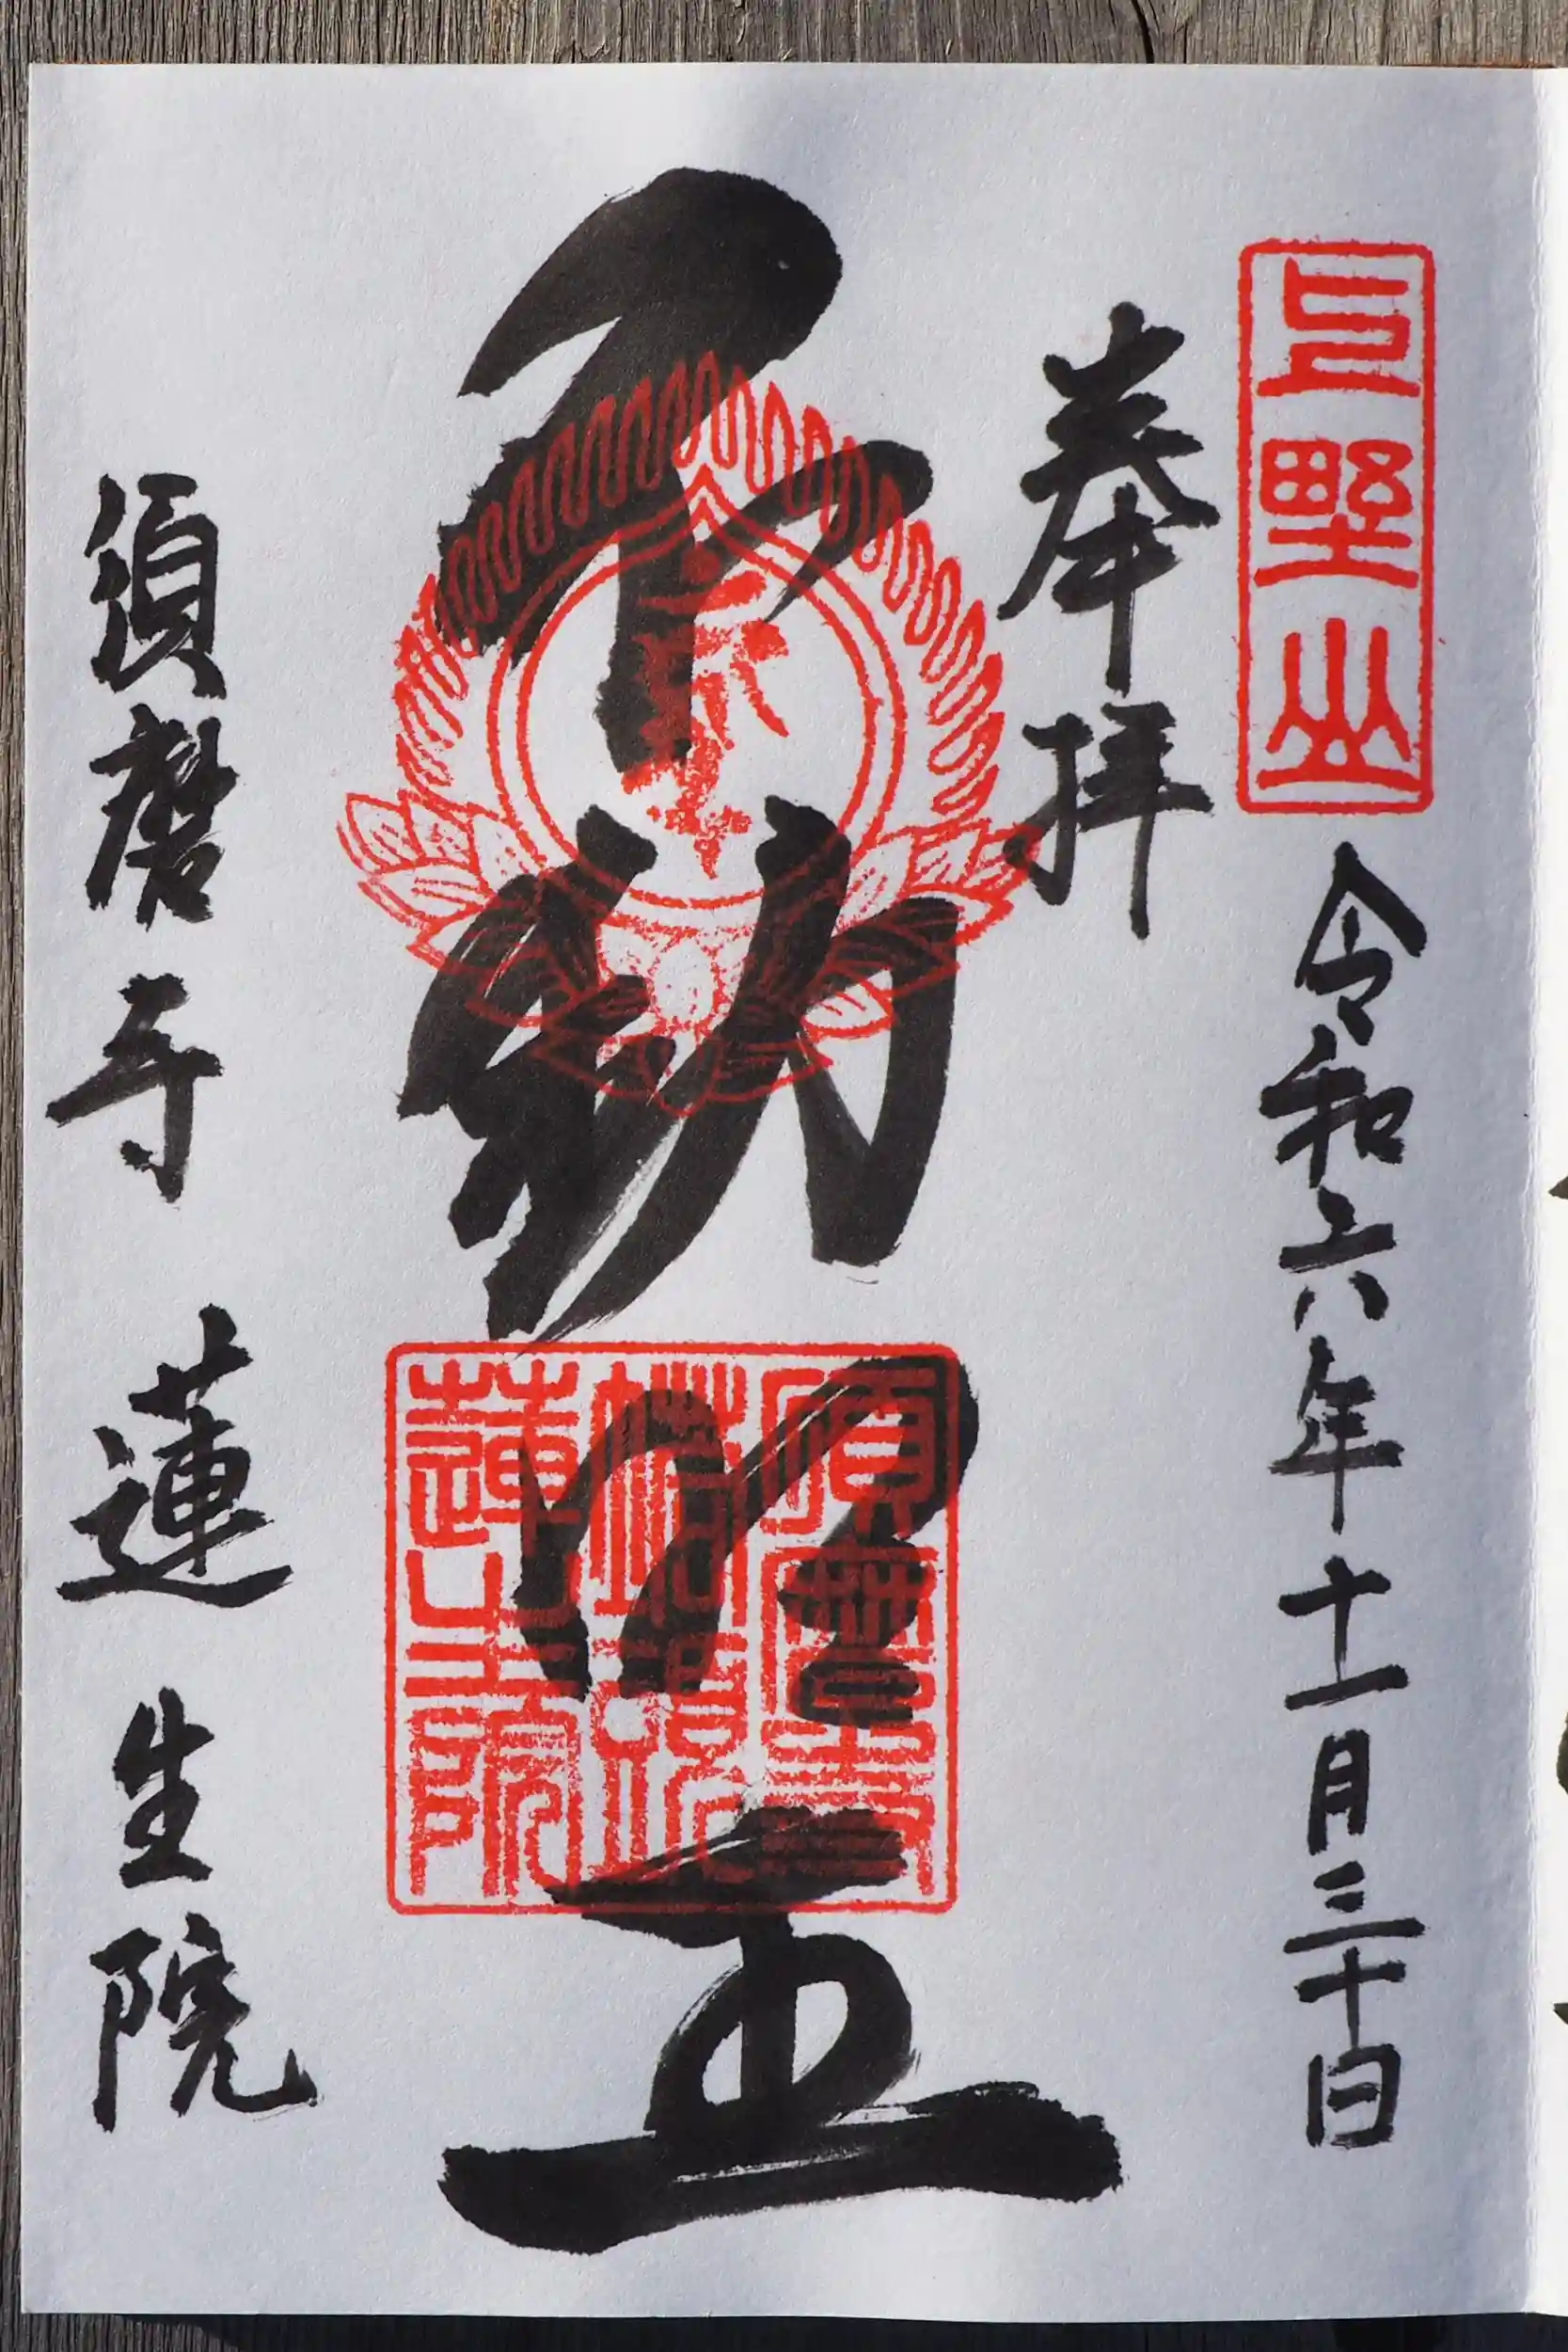 上野山
令和六年十一月三十日
奉拝
不動明王
須磨寺
蓮生院
須磨寺 蓮生院